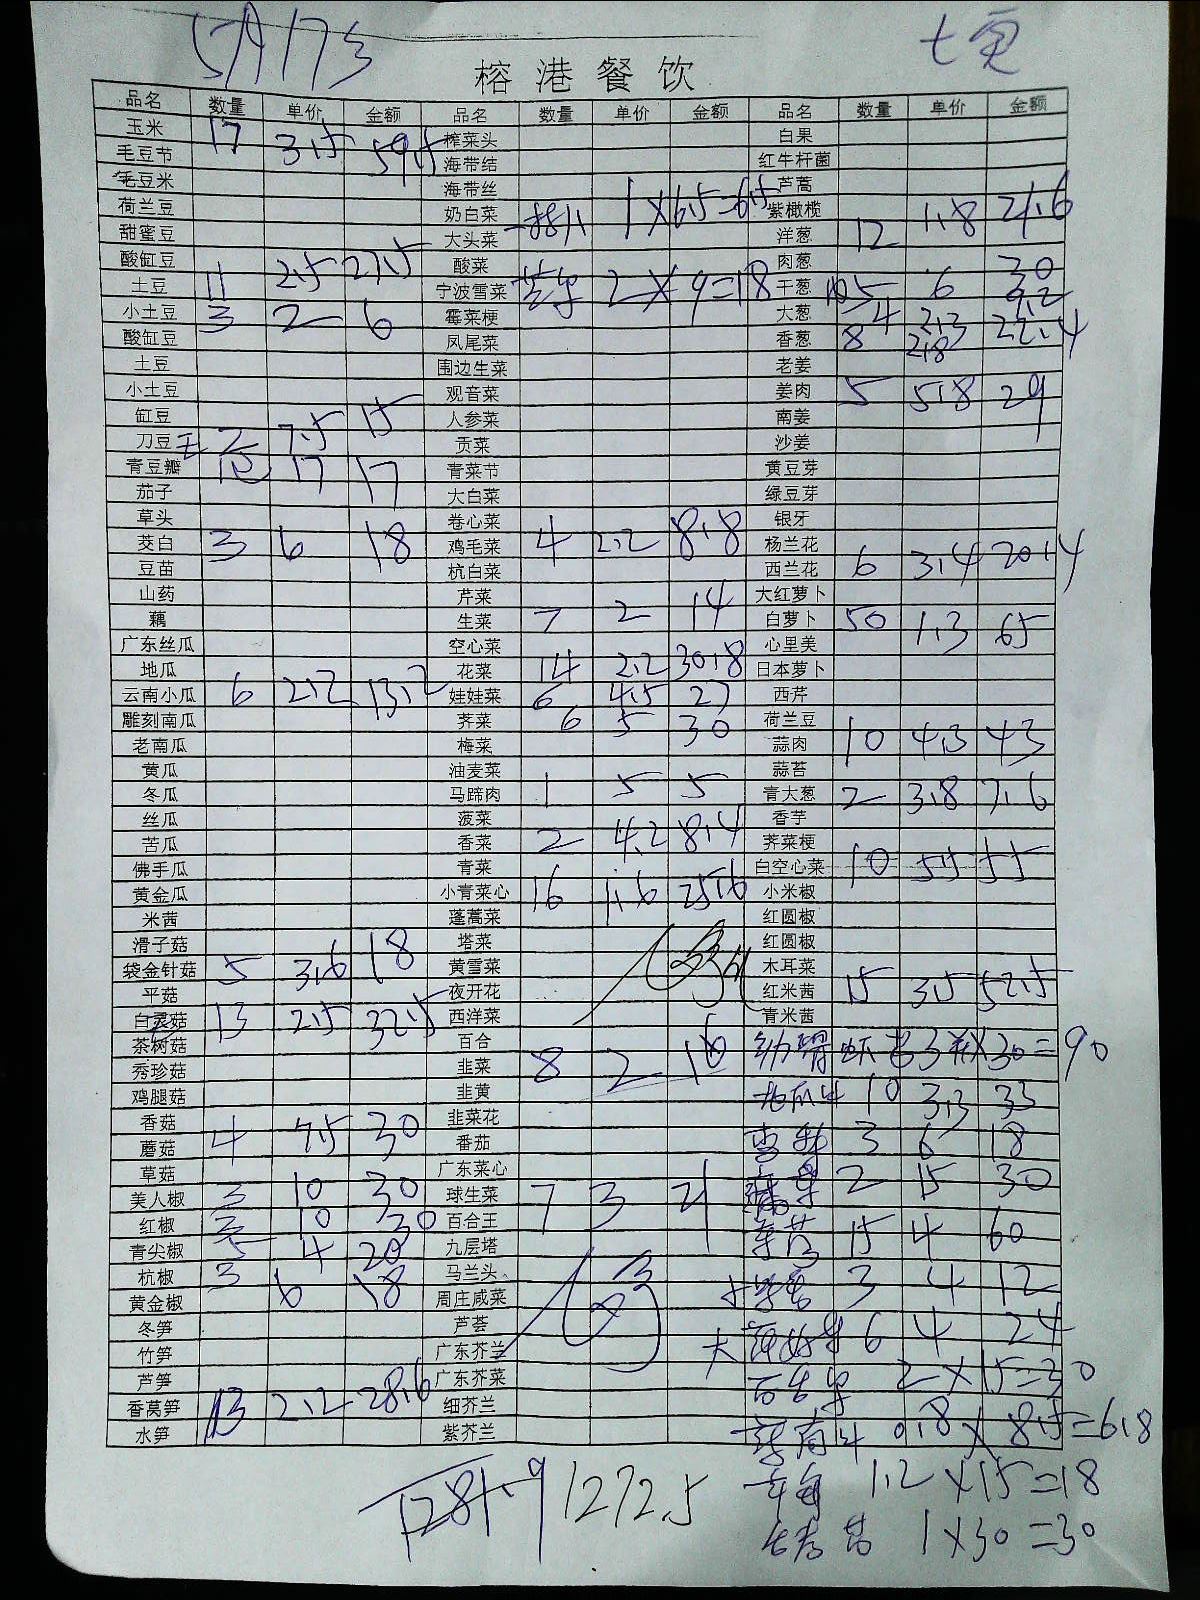 5月17号 七寅
榕港餐饮
品名 数量 单价 金额 品名 数量 单价 金额 品名 数量 单价 金额
玉米 17 3.5 59.5 榨菜头 白果
毛豆节 海带结 红牛杆菌
毛豆米 海带丝 芦蒿
荷兰豆 奶白菜 1×6.5=6.5 紫橄榄
甜蜜豆 大头菜 洋葱 12 1.8 21.6
酸缸豆 酸菜 肉葱
土豆 11 2.5 27.5 宁波雪菜 2×9=18 干葱 5 6 30
小土豆 3 2 6 霉菜梗 大葱 4 2.3 9.2
酸缸豆 凤尾菜 香葱 8 2.8 22.4
土豆 围边生菜 老姜
小土豆 观音菜 姜肉 5 5.8 29
缸豆 人参菜 南姜
刀豆 2 7.5 15 贡菜 沙姜
青豆瓣 17 17 青菜节 黄豆芽
茄子 大白菜 绿豆芽
草头 卷心菜 银牙
茭白 3 6 18 鸡毛菜 4 2.2 8.8 杨兰花
豆苗 杭白菜 西兰花 6 3.4 20.4
山药 芹菜 大红萝卜
藕 生菜 7 2 14 白萝卜 50 1.3 65
广东丝瓜 空心菜 心里美
地瓜 花菜 14 2.2 30.8 日本萝卜
云南小瓜 6 2.2 13.2 娃娃菜 6 4.5 27 西芹
雕刻南瓜 荠菜 6 5 30 荷兰豆
老南瓜 梅菜 蒜肉 10 4.3 43
黄瓜 油麦菜 蒜苔
冬瓜 马蹄肉 1 5 5 青大葱 2 3.8 7.6
丝瓜 菠菜 香芋
苦瓜 香菜 2 4.2 8.4 荠菜梗
佛手瓜 青菜 白空心菜 10 5.5 55
黄金瓜 小青菜心 16 1.6 25.6 小米椒
米茜 蓬蒿菜 红圆椒
滑子菇 塔菜 红圆椒
袋金针菇 5 3.6 18 黄雪菜 木耳菜
平菇 夜开花 红米茜 15 3.5 52.5
白灵菇 13 2.5 32.5 西洋菜 青米茜
茶树菇 百合 ×30=90
秀珍菇 韭菜 8 2 16
鸡腿菇 韭黄 10 3.3 33
香菇 韭菜花
蘑菇 4 7.5 30 番茄 3 6 18
草菇 广东菜心 2 15 30
美人椒 3 10 30 球生菜 7 3 21
红椒 3 10 30 百合王 15 4 60
青尖椒 5 4 20 九层塔
杭椒 3 6 18 马兰头 3 4 12
黄金椒 周庄咸菜
冬笋 芦荟 6 4 24
竹笋 广东芥兰
芦笋 广东芥菜 2×15=30
香莴笋 13 2.2 28.6 细芥兰
水笋 紫芥兰 0.8×8.5=6.8
1281.9 1272.5 1.2×15=18
1×30=30